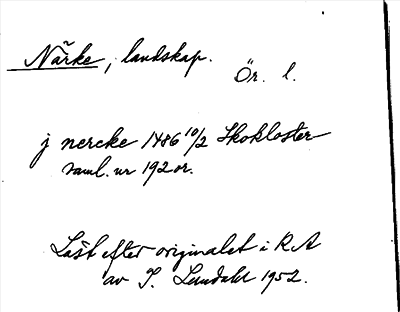 Närke, landskap.
Ör. l.
j nercke 1486 10/2 Skokloster
saml. nr 192 or.
Läst efter originalet i RA
av I. Lundahl 1952.